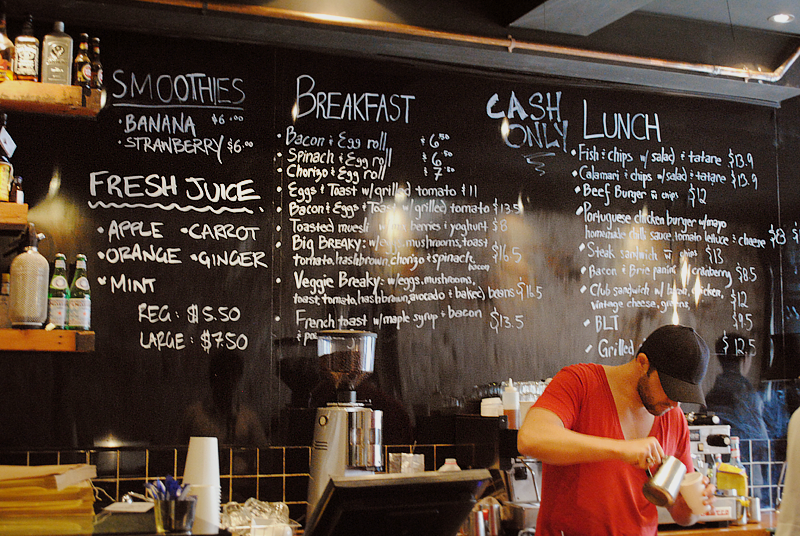 SMOOTHIES
• BANANA $6.00
• STRAWBERRY $6.00
FRESH JUICE.
• APPLE • CARROT
• ORANGE • GINGER
• MINT
REG: $5.50
LARGE: $7.50
BREAKFAST
• Bacon & Egg roll $6.50
• Spinach & Egg roll $6.50
• Chorizo & Egg roll $7.50
• Eggs & Toast w/ grilled tomato $11
• Bacon & Eggs & Toast w/ grilled tomato $13.5
• Toasted muesli w/ berries & yoghurt $8
• Big BREAKY: w/ eggs, mushrooms, toast
tomato, hashbrown, chorizo & spinach $16.5
bacon
• Veggie Breaky: w/ eggs, mushrooms,
toast, tomato, hashbrown, avocado & baked beans $16.5
• French toast w/ maple syrup & bacon $13.5
CASH
ONLY
LUNCH
• Fish & chips w/ salad & tatare $13.9
• Calamari & chips w/ salad & tatare $13.9
• Beef Burger w/ chips $12
• Portuguese chicken burger w/ mayo
homemade chilli sauce, tomato lettuce & cheese $8
• Steak sandwich w/ chips $13
• Bacon & Brie panini cranberry $8.5
• Club sandwich w/ chicken,
vintage cheese, $12
• BLT $9.5
• Grilled $12.5